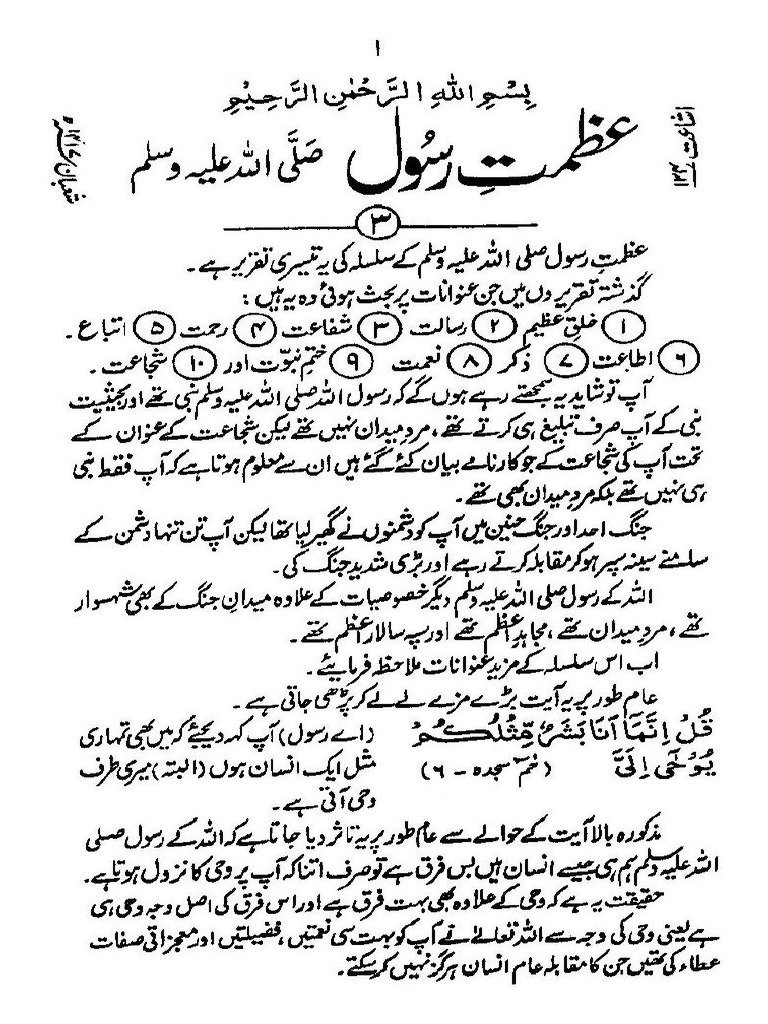 ۱
بِسْمِ اللهِ الرَّحْمٰنِ الرَّحِيْمِ
عظمتِ رسُول صَلَّی اللہ علیہ وسلم
اشاعت ۱۲۳
شعبان
۳
عظمتِ رسول صلی اللہ علیہ وسلم کے سلسلہ کی یہ تیسری تقریر ہے۔
گذشتہ تقریروں میں جن عنوانات پر بحث ہوئی وہ یہ ہیں:
۱ خلقِ عظیم ۲ رسالت ۳ شفاعت ۴ رحمت ۵ اتباع۔
۶ اطاعت ۷ ذکر ۸ نعمت ۹ ختمِ نبوّت اور ۱۰ شجاعت۔
آپ تو شاید یہ سمجھتے رہے ہوں گے کہ رسول اللہ صلی اللہ علیہ وسلم نبی تھے اور بحیثیت
نبی کے آپ صرف تبلیغ ہی کرتے تھے، مردِ میدان نہیں تھے لیکن شجاعت کے عنوان کے
تحت آپ کی شجاعت کے جو کارنامے بیان کئے گئے ہیں ان سے معلوم ہوتا ہے کہ آپ فقط نبی
ہی نہیں تھے بلکہ مردِ میدان بھی تھے۔
جنگ احد اور جنگ حنین میں آپ کو دشمنوں نے گھیر لیا تھا لیکن آپ تن تنہا دشمن کے
سامنے سینہ سپر ہو کر مقابلہ کرتے رہے اور بڑی شدید جنگ کی۔
اللہ کے رسول صلی اللہ علیہ وسلم دیگر خصوصیات کے علاوہ میدانِ جنگ کے بھی شہسوار
تھے، مردِ میدان تھے، مجاہدِ اعظم تھے اور سپہ سالارِ اعظم تھے۔
اب اس سلسلہ کے مزید عنوانات ملاحظہ فرمایئے۔
عام طور پر یہ آیت بڑے مزے لے لے کر پڑھی جاتی ہے۔
قُلْ اِنَّمَا اَنَا بَشَرٌ مِّثْلُكُمْ (اے رسول) آپ کہہ دیجئے کہ میں بھی تمہاری
يُوْحٰى اِلَىَّ (حٰم سجدہ - ۶) مثل ایک انسان ہوں (البتہ) میری طرف
وحی آتی ہے۔
مذکورہ بالا آیت کے حوالے سے عام طور پر یہ تاثر دیا جاتا ہے کہ اللہ کے رسول صلی
اللہ علیہ وسلم ہم ہی جیسے انسان ہیں بس فرق ہے تو صرف اتنا کہ آپ پر وحی کا نزول ہوتا ہے۔
حقیقت یہ ہے کہ وحی کے علاوہ بھی بہت فرق ہے اور اس فرق کی اصل وجہ وحی ہی
ہے یعنی وحی کی وجہ سے اللہ تعالیٰ نے آپ کو بہت سی نعمتیں، فضیلتیں اور معجزاتی صفات
عطاء کی تھیں جن کا مقابلہ عام انسان ہرگز نہیں کرسکتے۔